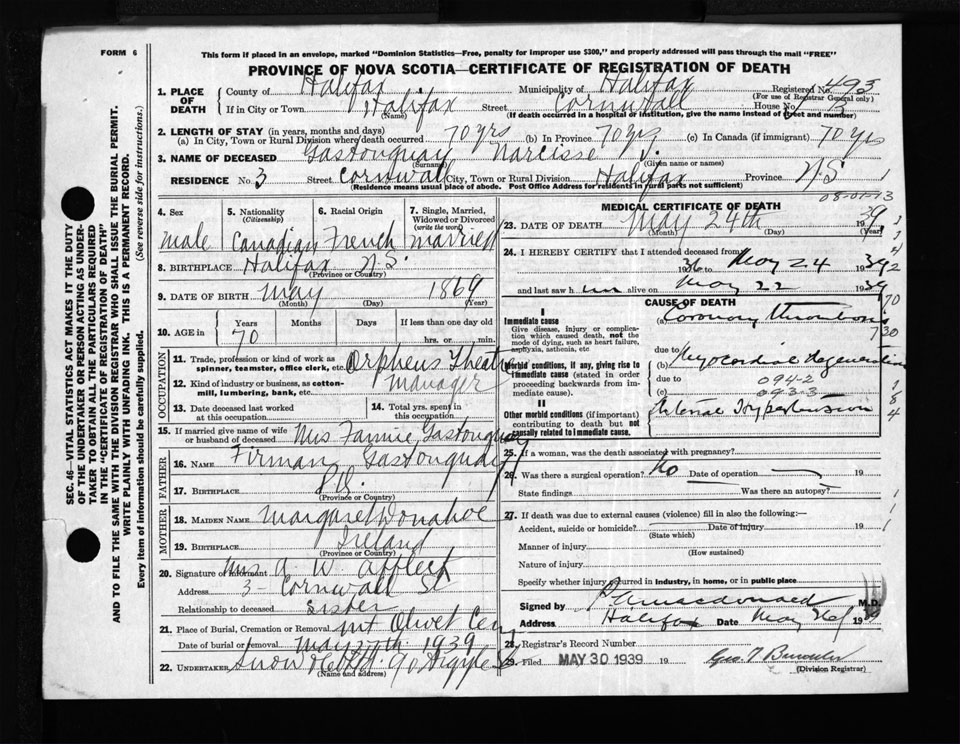 FORM 6
This form if placed in an envelope, marked "Dominion Statistics—Free, penalty for improper use $300," and properly addressed will pass through the mail "FREE"
PROVINCE OF NOVA SCOTIA—CERTIFICATE OF REGISTRATION OF DEATH
1. PLACE OF DEATH County of Halifax Municipality of Halifax Registered No. 493
(For use of Registrar General only)
If in City or Town Halifax Street Cornwall House No. 3
(Name) (If death occurred in a hospital or institution, give the name instead of street and number)
2. LENGTH OF STAY (in years, months and days)
(a) In City, Town or Rural Division where death occurred 70 yrs (b) In Province 70 yrs (c) In Canada (if immigrant) 70 yrs
3. NAME OF DECEASED Gastonguay Narcisse J.
(Surname) (Given name or names)
RESIDENCE No. 3 Street Cornwall City, Town or Rural Division Halifax Province N.S
(Residence means usual place of abode. Post Office Address for residents in rural parts not sufficient)
08-01-13
4. Sex 5. Nationality (Citizenship) 6. Racial Origin 7. Single, Married, Widowed or Divorced (write the word)
Male Canadian French married
8. BIRTHPLACE Halifax N.S.
(Province or Country)
9. DATE OF BIRTH May 1869
(Month) (Day) (Year)
10. AGE in Years Months Days If less than one day old
70 hrs. or min.
OCCUPATION
11. Trade, profession or kind of work as spinner, teamster, office clerk, etc. Orpheus Theatre
12. Kind of industry or business, as cotton-mill, lumbering, bank, etc. Manager
13. Date deceased last worked at this occupation 14. Total yrs. spent in this occupation
15. If married give name of wife or husband of deceased Mrs Fannie Gastonguay
FATHER
16. NAME Firman Gastonguay
17. BIRTHPLACE
(Province or Country)
MOTHER
18. MAIDEN NAME Margaret Donahoe
19. BIRTHPLACE Ireland
(Province or Country)
20. Signature of informant Mrs A. W. Affleck
Address 3 - Cornwall St
Relationship to deceased sister
21. Place of Burial, Cremation or Removal Mt Olivet Cem
Date of burial or removal May 27th 1939
22. UNDERTAKER Snow & Co Ltd 90 Argyle St
(Name and address)
MEDICAL CERTIFICATE OF DEATH
23. DATE OF DEATH May 24th 1939
(Month) (Day) (Year)
24. I HEREBY CERTIFY that I attended deceased from
1936 to May 24 1939
and last saw him alive on May 22 1939
CAUSE OF DEATH
I
Immediate cause
Give disease, injury or complication which caused death, not the mode of dying, such as heart failure, asphyxia, asthenia, etc
(a) Coronary Thrombosis
due to
Morbid conditions, if any, giving rise to immediate cause (stated in order proceeding backwards from immediate cause).
(b) Myocardial degeneration
due to 094-2
(c) 093-3
II
Other morbid conditions (if important) contributing to death but not causally related to immediate cause.
Arterial Hypertension
25. If a woman, was the death associated with pregnancy?
26. Was there a surgical operation? No Date of operation 19
State findings Was there an autopsy?
27. If death was due to external causes (violence) fill in also the following:—
Accident, suicide or homicide? Date of injury 19
(State which)
Manner of injury
(How sustained)
Nature of injury
Specify whether injury occurred in industry, in home, or in public place
Signed by M.D.
Address Halifax Date May 26 1939
28. Registrar's Record Number
29. Filed MAY 30 1939 19
(Division Registrar)
SEC. 46—VITAL STATISTICS ACT MAKES IT THE DUTY
OF THE UNDERTAKER OR PERSON ACTING AS UNDERTAKER TO OBTAIN ALL THE PARTICULARS REQUIRED
IN THE "CERTIFICATE OF REGISTRATION OF DEATH"
AND TO FILE THE SAME WITH THE DIVISION REGISTRAR WHO SHALL ISSUE THE BURIAL PERMIT.
WRITE PLAINLY WITH UNFADING INK. THIS IS A PERMANENT RECORD.
Every item of information should be carefully supplied. (See reverse side for instructions.)